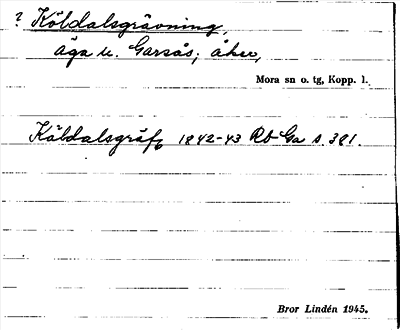 ? Köldalsgrävning,
äga u. Garsås; åker,
Mora sn o. tg, Kopp. l.
Käldalsgräfn 1842-43 Rb Ga s. 381.
Bror Lindén 1945.